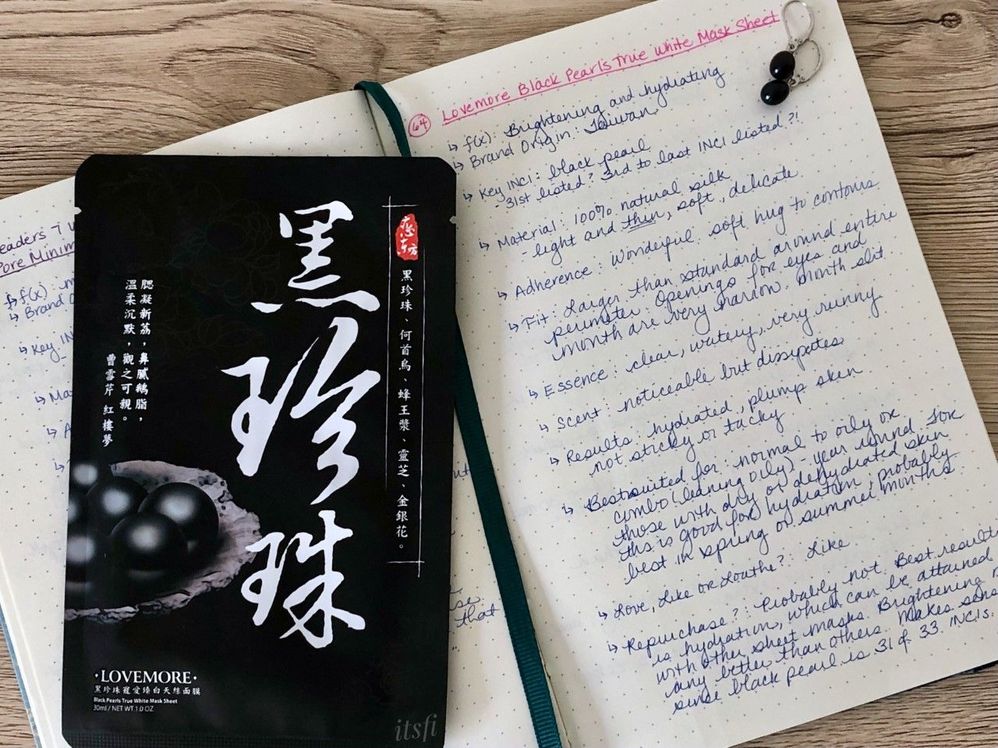 eaders 7
Pore Minim
f(x):
Brand
Key IN
Ma
that
64 Lovemore Black Pearls True White Mask Sheet
↳ f(x): Brightening and hydrating
↳ Brand Origin: Taiwan
↳ Key INCI: black pearl
31st listed? 3rd to last INCI listed?!
↳ Material: 100% natural silk
- light and thin, soft, delicate
↳ Adherence: Wonderful. soft hug to contours
↳ Fit: Larger than standard around entire
perimeter. Openings for eyes and
mouth are very narrow. Mouth slit
↳ Essence: clear, watery, very runny
↳ Scent: noticeable but dissipates
↳ Results: hydrated, plump skin
not sticky or tacky
↳ Best suited for: normal to oily or
combo (leaning oily) year round. For
those with dry or dehydrated skin
this is good for hydration; probably
best in spring or summer months.
↳ Love, Like or Loathe?: Like
↳ Repurchase?: Probably not. Best results
is hydration, which can be attained
with other sheet masks. Brightening
any better than others. Makes sens
since black pearl is 31 of 33. INCIS.
黑珍珠
黑珍珠、何首烏、蜂王漿、靈芝、金銀花。
腮凝新荔，鼻膩鵝脂，
溫柔沉默，觀之可親。
曹雪芹 紅樓夢
·LOVEMORE·
黑珍珠寵愛臻白天絲面膜
Black Pearls True White Mask Sheet
30ml / NET WT 1.0 OZ
itsfi